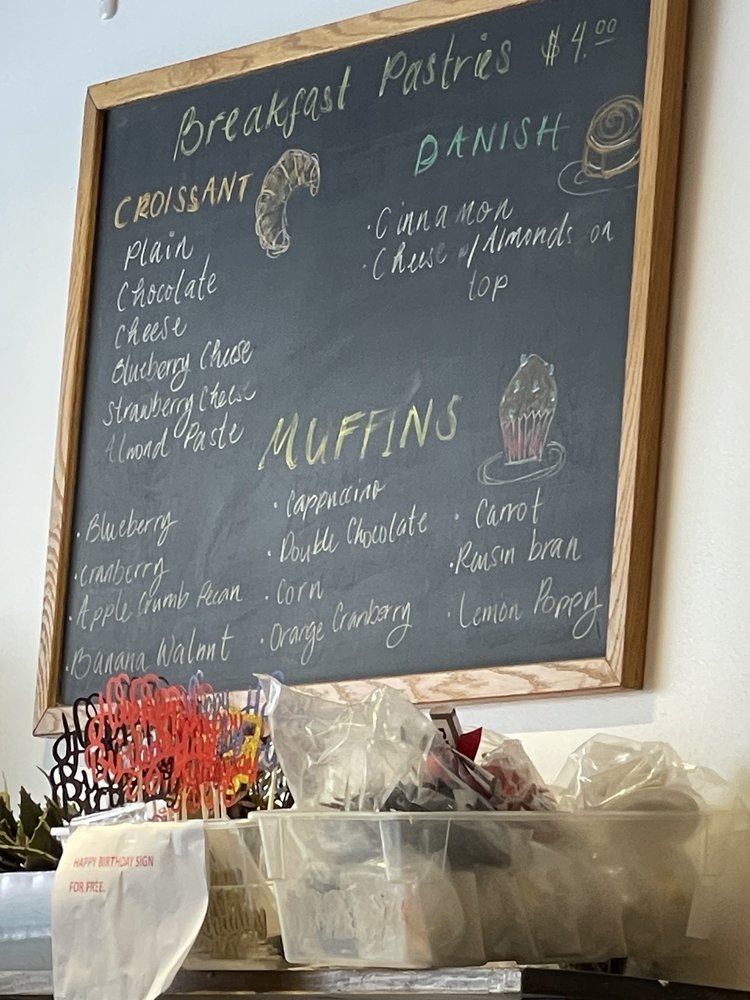 Breakfast Pastries $4.00
CROISSANT
Plain
Chocolate
Cheese
Blueberry Cheese
Strawberry Cheese
Almond Paste
DANISH
· Cinnamon
· Cheese w/ Almonds on
top
MUFFINS
· Blueberry
· Cranberry
· Apple Crumb Pecan
· Banana Walnut
· Cappuccino
· Double Chocolate
· Corn
· Orange Cranberry
· Carrot
· Raisin bran
· Lemon Poppy
Happy
Birthday
HAPPY BIRTHDAY SIGN
FOR FREE.